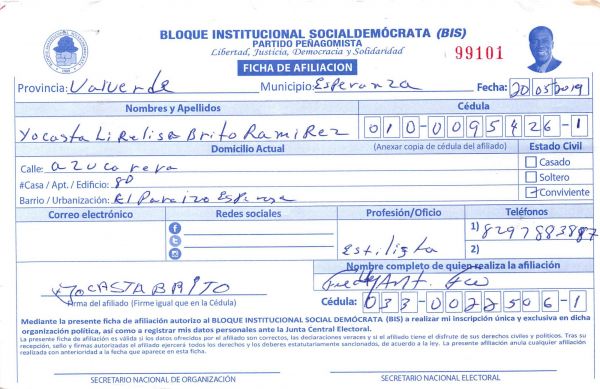 BLOQUE INSTITUCIONAL SOCIALDEMÓCRATA (BIS)
PARTIDO PEÑAGOMISTA
Libertad, Justicia, Democracia y Solidaridad
99101
FICHA DE AFILIACION
Provincia: Valverde Municipio: Esperanza Fecha: 20 05 2019
Nombres y Apellidos Cédula
Yocasta Lirelisa Brito Ramirez 010-0095426-1
Domicilio Actual (Anexar copia de cédula del afiliado) Estado Civil
Calle: azucarera Casado
#Casa / Apt. / Edificio: 80 Soltero
Barrio / Urbanización: El Paraizo Conviviente
Correo electrónico Redes sociales Profesión/Oficio Teléfonos
Estilista 1) 8297883887
2)
Nombre completo de quien realiza la afiliación
YOCASTA BRITO
Firma del afiliado (Firme igual que en la Cédula) Cédula: 033-0022506-1
Mediante la presente ficha de afiliación autorizo al BLOQUE INSTITUCIONAL SOCIAL DEMÓCRATA (BIS) a realizar mi inscripción única y exclusiva en dicha
organización política, así como a registrar mis datos personales ante la Junta Central Electoral.
La presente ficha de afiliación es válida si los datos ofrecidos por el afiliado son correctos, las declaraciones veraces y si el titular tiene el disfrute de sus derechos civiles y políticos. Tras su
recepción, sello y firmas autorizadas el afiliado ejercerá todos los derechos y los deberes estatutariamente sancionados, de acuerdo a la ley. La presente afiliación anula cualquier afiliación
realizada con anterioridad a la fecha que aparece en esta ficha.
SECRETARIO NACIONAL DE ORGANIZACIÓN SECRETARIO NACIONAL ELECTORAL